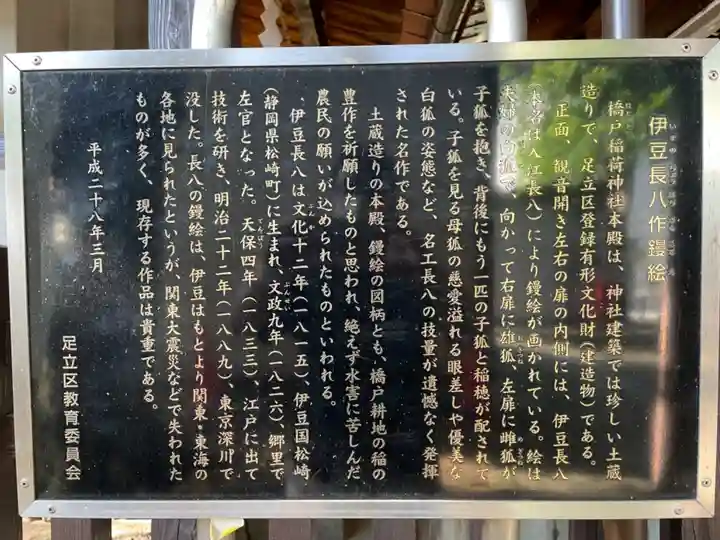 伊豆長八作鏝絵
橋戸稲荷神社本殿は、神社建築では珍しい土蔵
造りで、足立区登録有形文化財(建造物)である。
正面、観音開き左右の扉の内側には、伊豆長八
(本名は入江長八)により鏝絵が画かれている。絵は
夫婦の白狐で、向かって右扉に雄狐、左扉に雌狐が
子狐を抱き、背後にもう一匹の子狐と稲穂が配されて
いる。子狐を見る母狐の慈愛溢れる眼差しや優美な
白狐の姿態など、名工長八の技量が遺憾なく発揮
された名作である。
土蔵造りの本殿、鏝絵の図柄とも、橋戸耕地の稲の
豊作を祈願したものと思われ、絶えず水害に苦しんだ
農民の願いが込められたものといわれる。
伊豆長八は文化十二年(一八一五)、伊豆国松崎
(静岡県松崎町)に生まれ、文政九年(一八二六)、郷里で
左官となった。天保四年(一八三三)、江戸に出て
技術を研き、明治二十二年(一八八九)、東京深川で
没した。長八の鏝絵は、伊豆はもとより関東・東海の
各地に見られたというが、関東大震災などで失われた
ものが多く、現存する作品は貴重である。
平成二十八年三月
足立区教育委員会